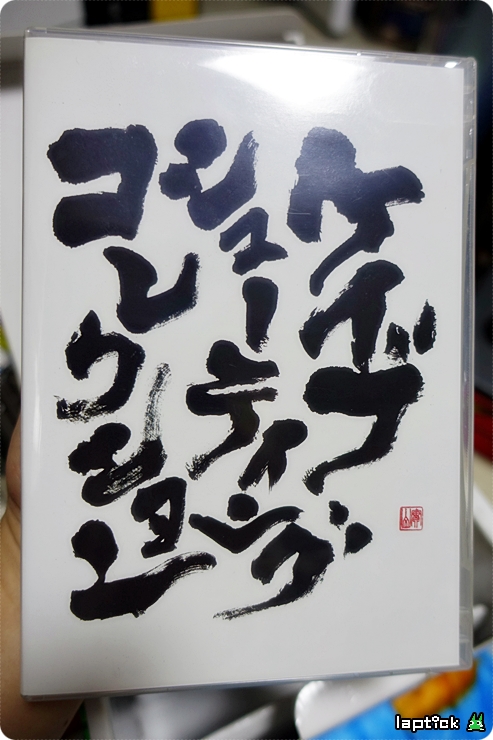 ケイブ
シューティング
コレクション
laptick